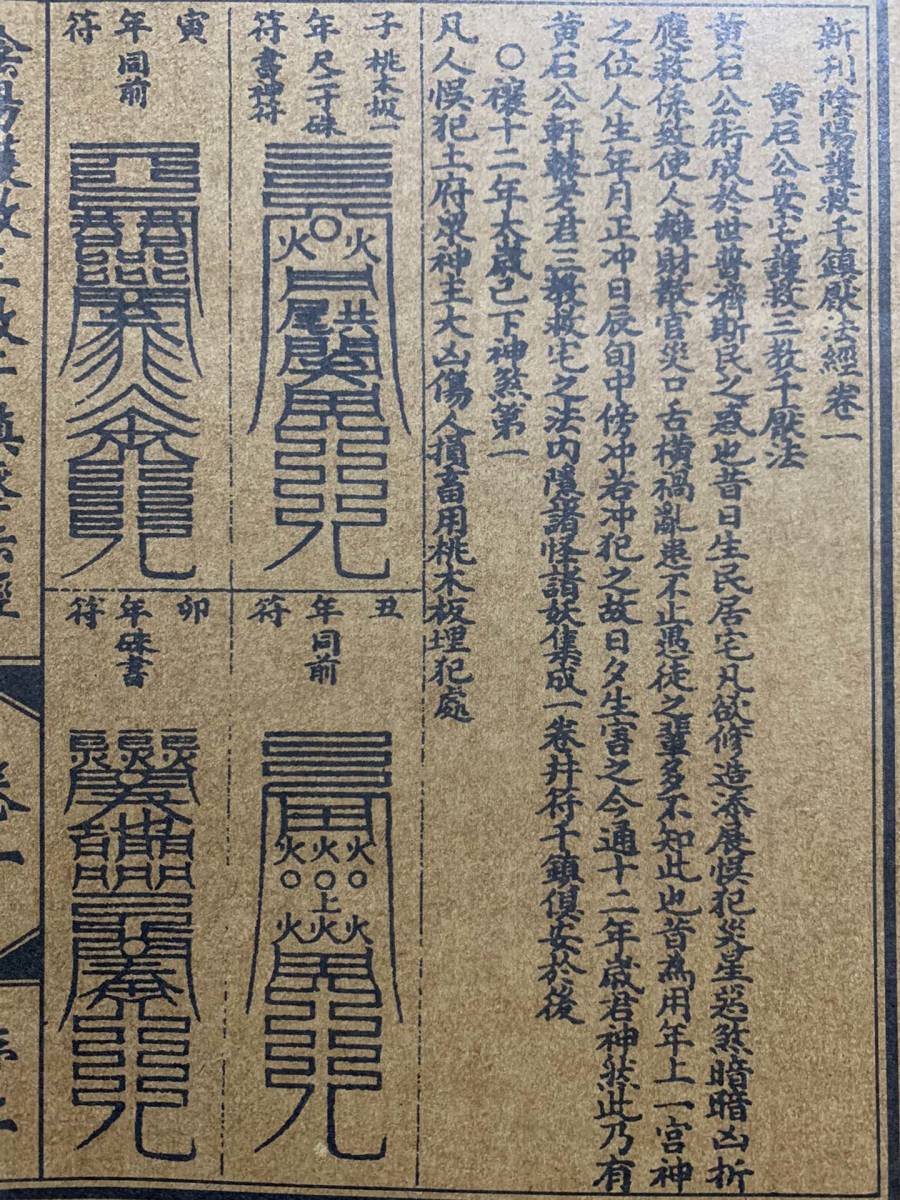 新刊陰陽護救千鎮厭法經卷一
黄石公安宅護救三教千厭法
黄石公術成於世普濟斯民之惑也昔日生民居宅凡欲修造添展悞犯災星惡煞暗暗凶折
應救係致使人離財散官災口舌橫禍亂患不止愚徒之輩多不知此也昔為用年上一宮神
之位人生年月正冲日辰旬中傍冲若冲犯之故日夕生害之今通十二年歲君神然此乃有
黄石公軒轅老君三教救宅之法内隱諸怪諸妖集成一卷并符千鎮俱安於後
○禳十二年太歲己下神煞第一
凡人悞犯土府衆神主大凶傷人損畜用桃木板埋犯處
子年符
桃木板一尺二寸硃書神符
火火
尾共
寅年符
同前
丑年符
同前
火火火
上
火火火
卯年符
硃書
卷一